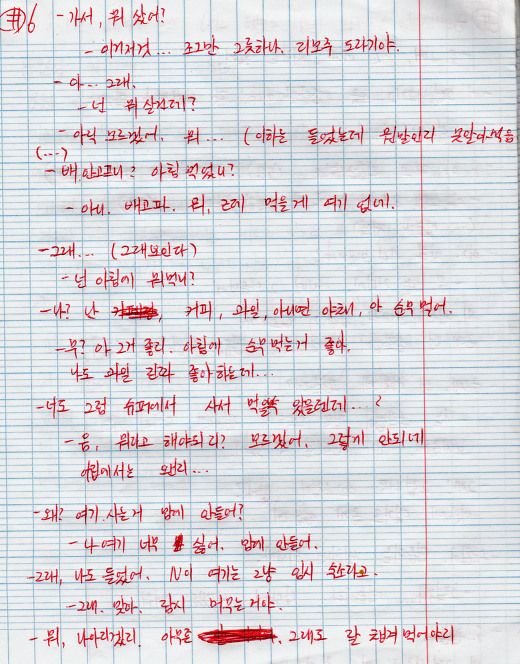 #6 - 가서, 뭐 샀어?
- 이거저것... 조그만 그릇하나. 리모주 도라기야.
- 아... 그래.
- 넌 뭐 살건데?
- 아직 모르겠어. 뭐... (이하는 들었는데 뭔말인지 못알아먹음
(...)
- 배 안고프니? 아침 먹었니?
- 아니. 배고파. 뭐, 근데 먹을게 여기 없네.
- 그래... (그래보인다)
- 넌 아침에 뭐먹니?
- 나? 난 커피, 과일, 아니면 야채, 아 순무 먹어.
- 무? 아 그거 좋지. 아침에 순무 먹는거 좋아.
나도 과일 진짜 좋아하는데...
- 너도 그럼 슈퍼에서 사서 먹 있을텐데...?
- 음, 뭐라고 해야되지? 모르겠어, 그렇게 안되네
아침에서는 왠지...
- 왜? 여기 사는거 맘에 안들어?
- 나 여기 너무 싫어. 맘에 안들어.
- 그래, 나도 들었어. N이 여기는 그냥 임시 숙소라고.
- 그래. 맞아. 잠시 머무는거야.
- 뭐, 나아지겠지. 아무튼 , 그래도 잘 챙겨먹어야지